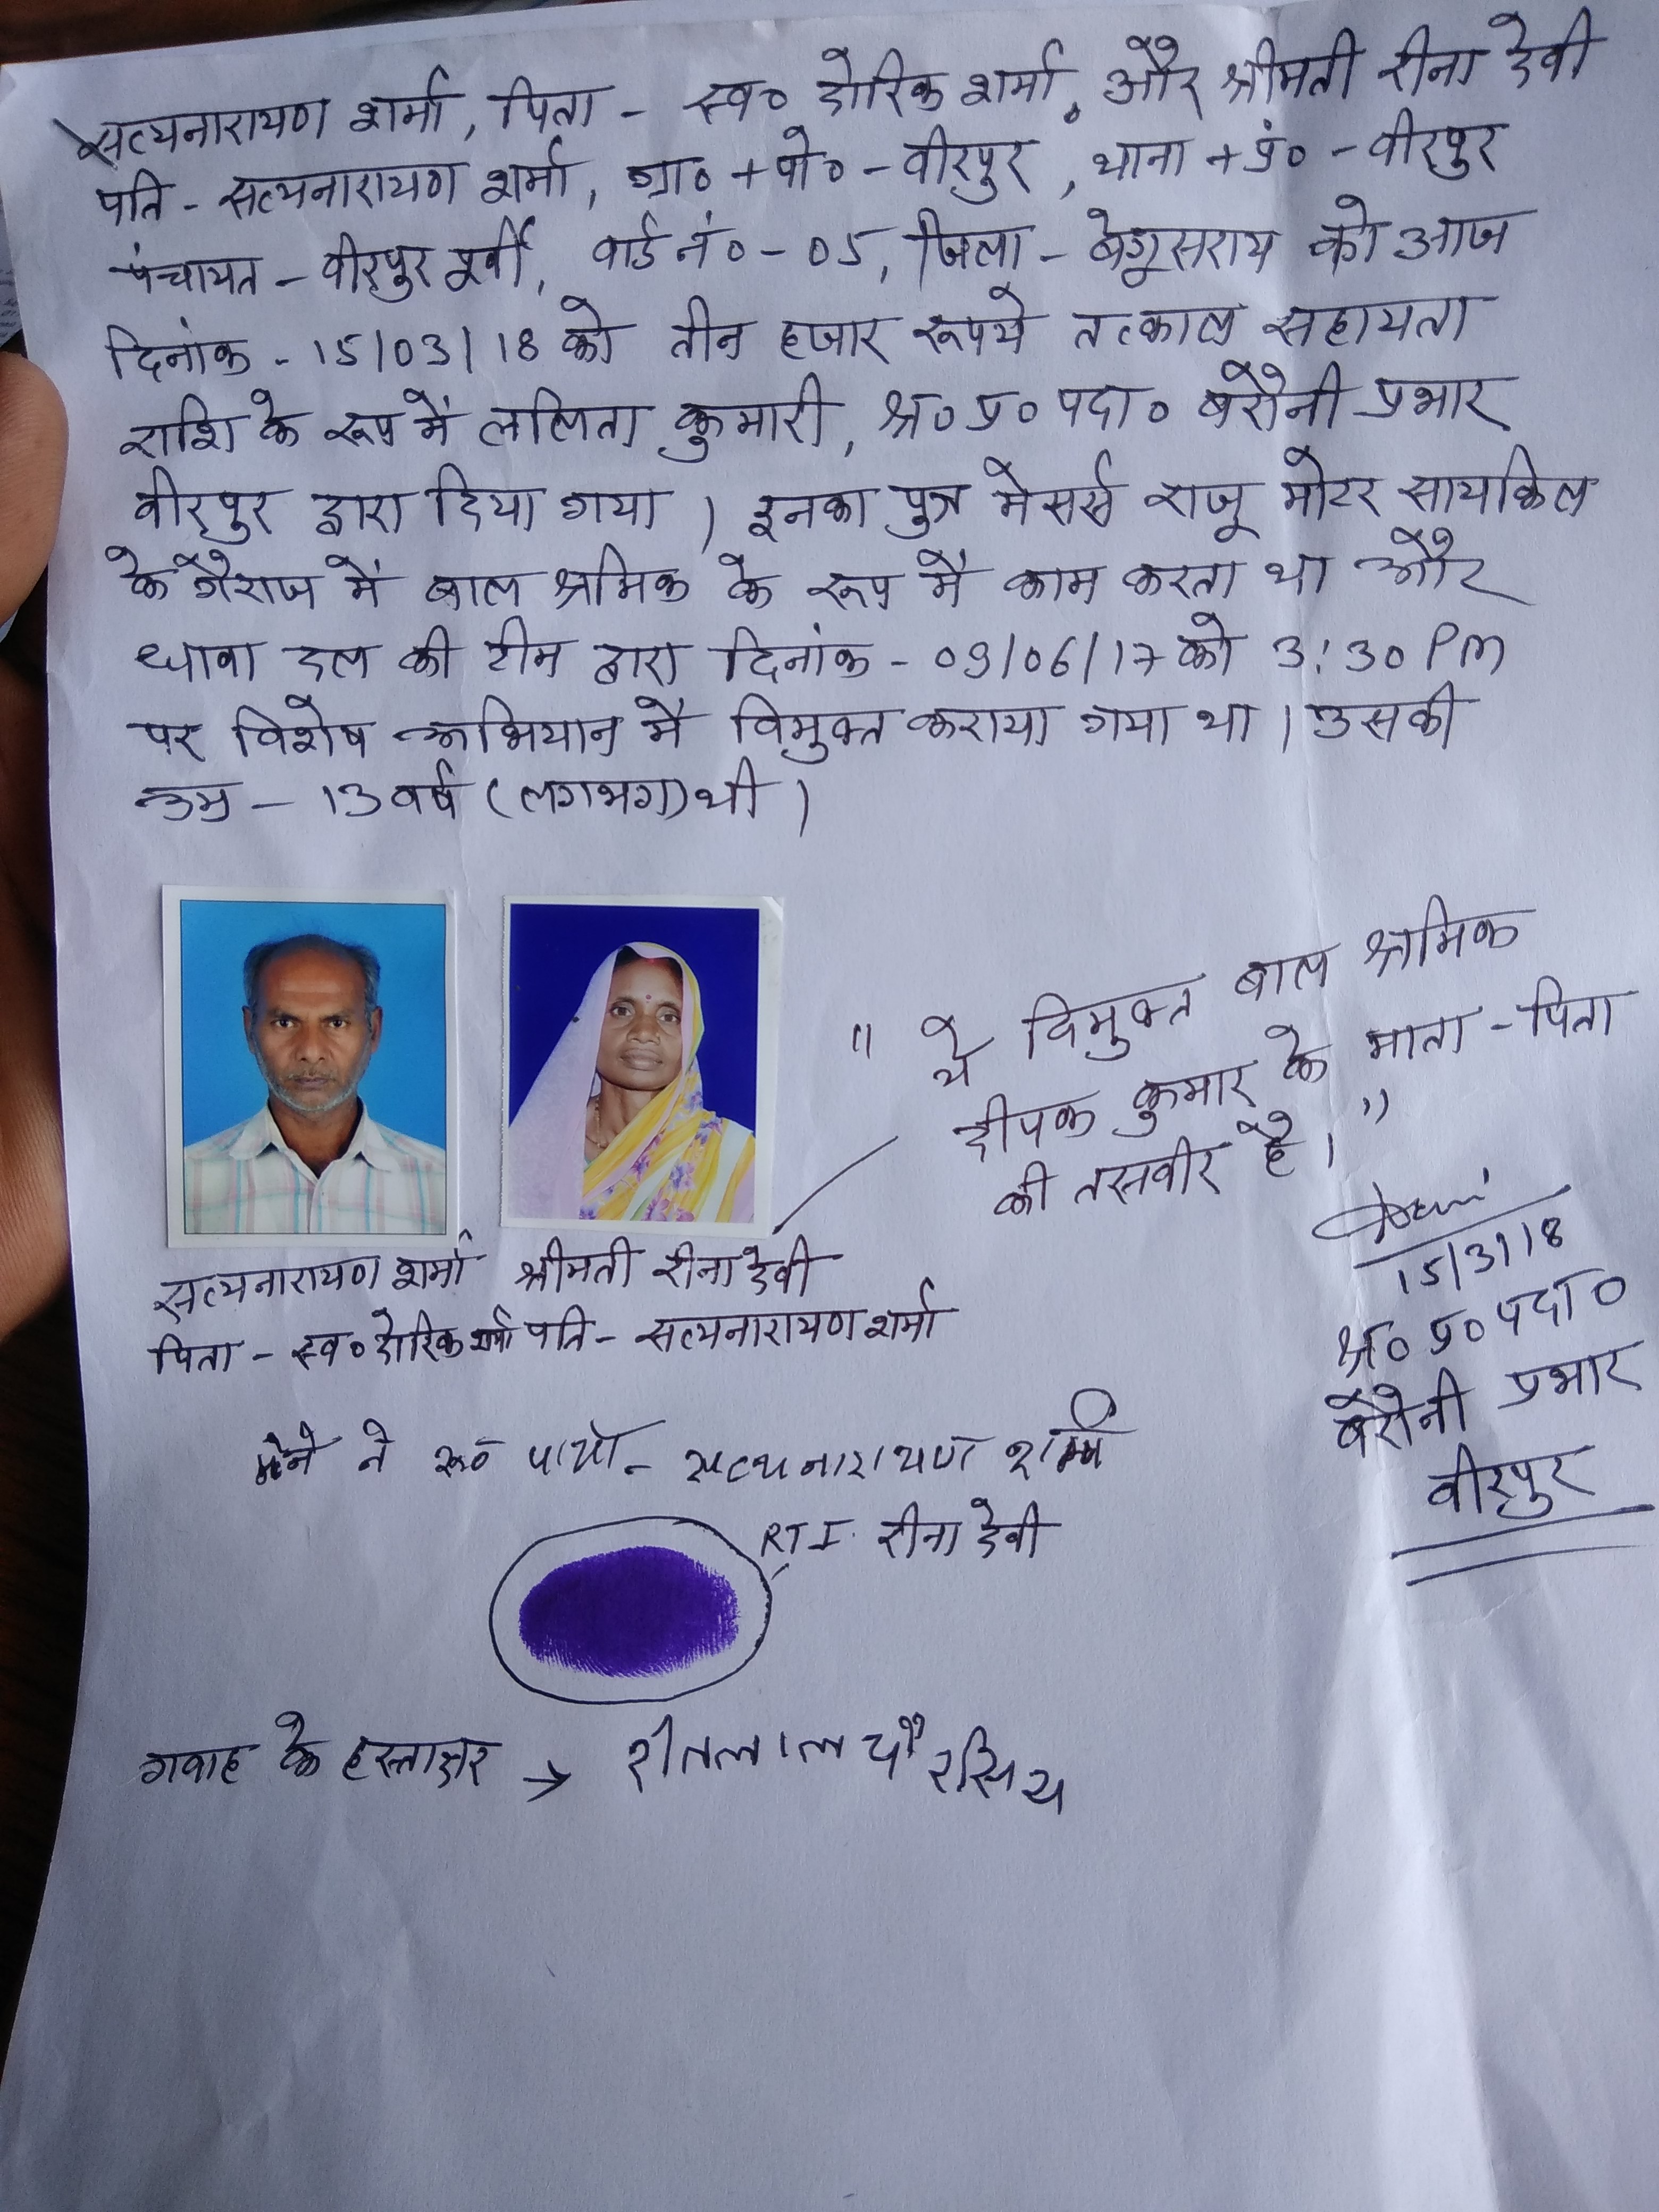 सत्यनारायण शर्मा, पिता - स्व० होरिक शर्मा, और श्रीमती रीना देवी
पति - सत्यनारायण शर्मा, ग्रा० + पो० - वीरपुर, थाना + प्रं० - वीरपुर
पंचायत - वीरपुर पूर्वी, वार्ड नं० - 05, जिला - बेगूसराय को आज
दिनांक - 15/03/18 को तीन हजार रूपये तत्काल सहायता
राशि के रूप में ललिता कुमारी, श्र० प्र० पदा० बरौनी प्रभार
वीरपुर द्वारा दिया गया । इनका पुत्र मेसर्स राजू मोटर सायकिल
के गैराज में बाल श्रमिक के रूप में काम करता था और
धावा दल की टीम द्वारा दिनांक - 09/06/17 को 3:30 PM
पर विशेष अभियान में विमुक्त कराया गया था । उसकी
उम्र - 13 वर्ष (लगभग) थी ।
" ये विमुक्त बाल श्रमिक
दीपक कुमार के माता - पिता
की तसवीर है । "
15/3/18
श्र० प्र० पदा०
बरौनी प्रभार
वीरपुर
सत्यनारायण शर्मा श्रीमती रीना देवी
पिता - स्व० होरिक शर्मा पति - सत्यनारायण शर्मा
मैने ने रू० पायो - सत्यनारायण शर्मा
RTI रीना देवी
गवाह के हस्ताक्षर → शीतलाल चौरसिय